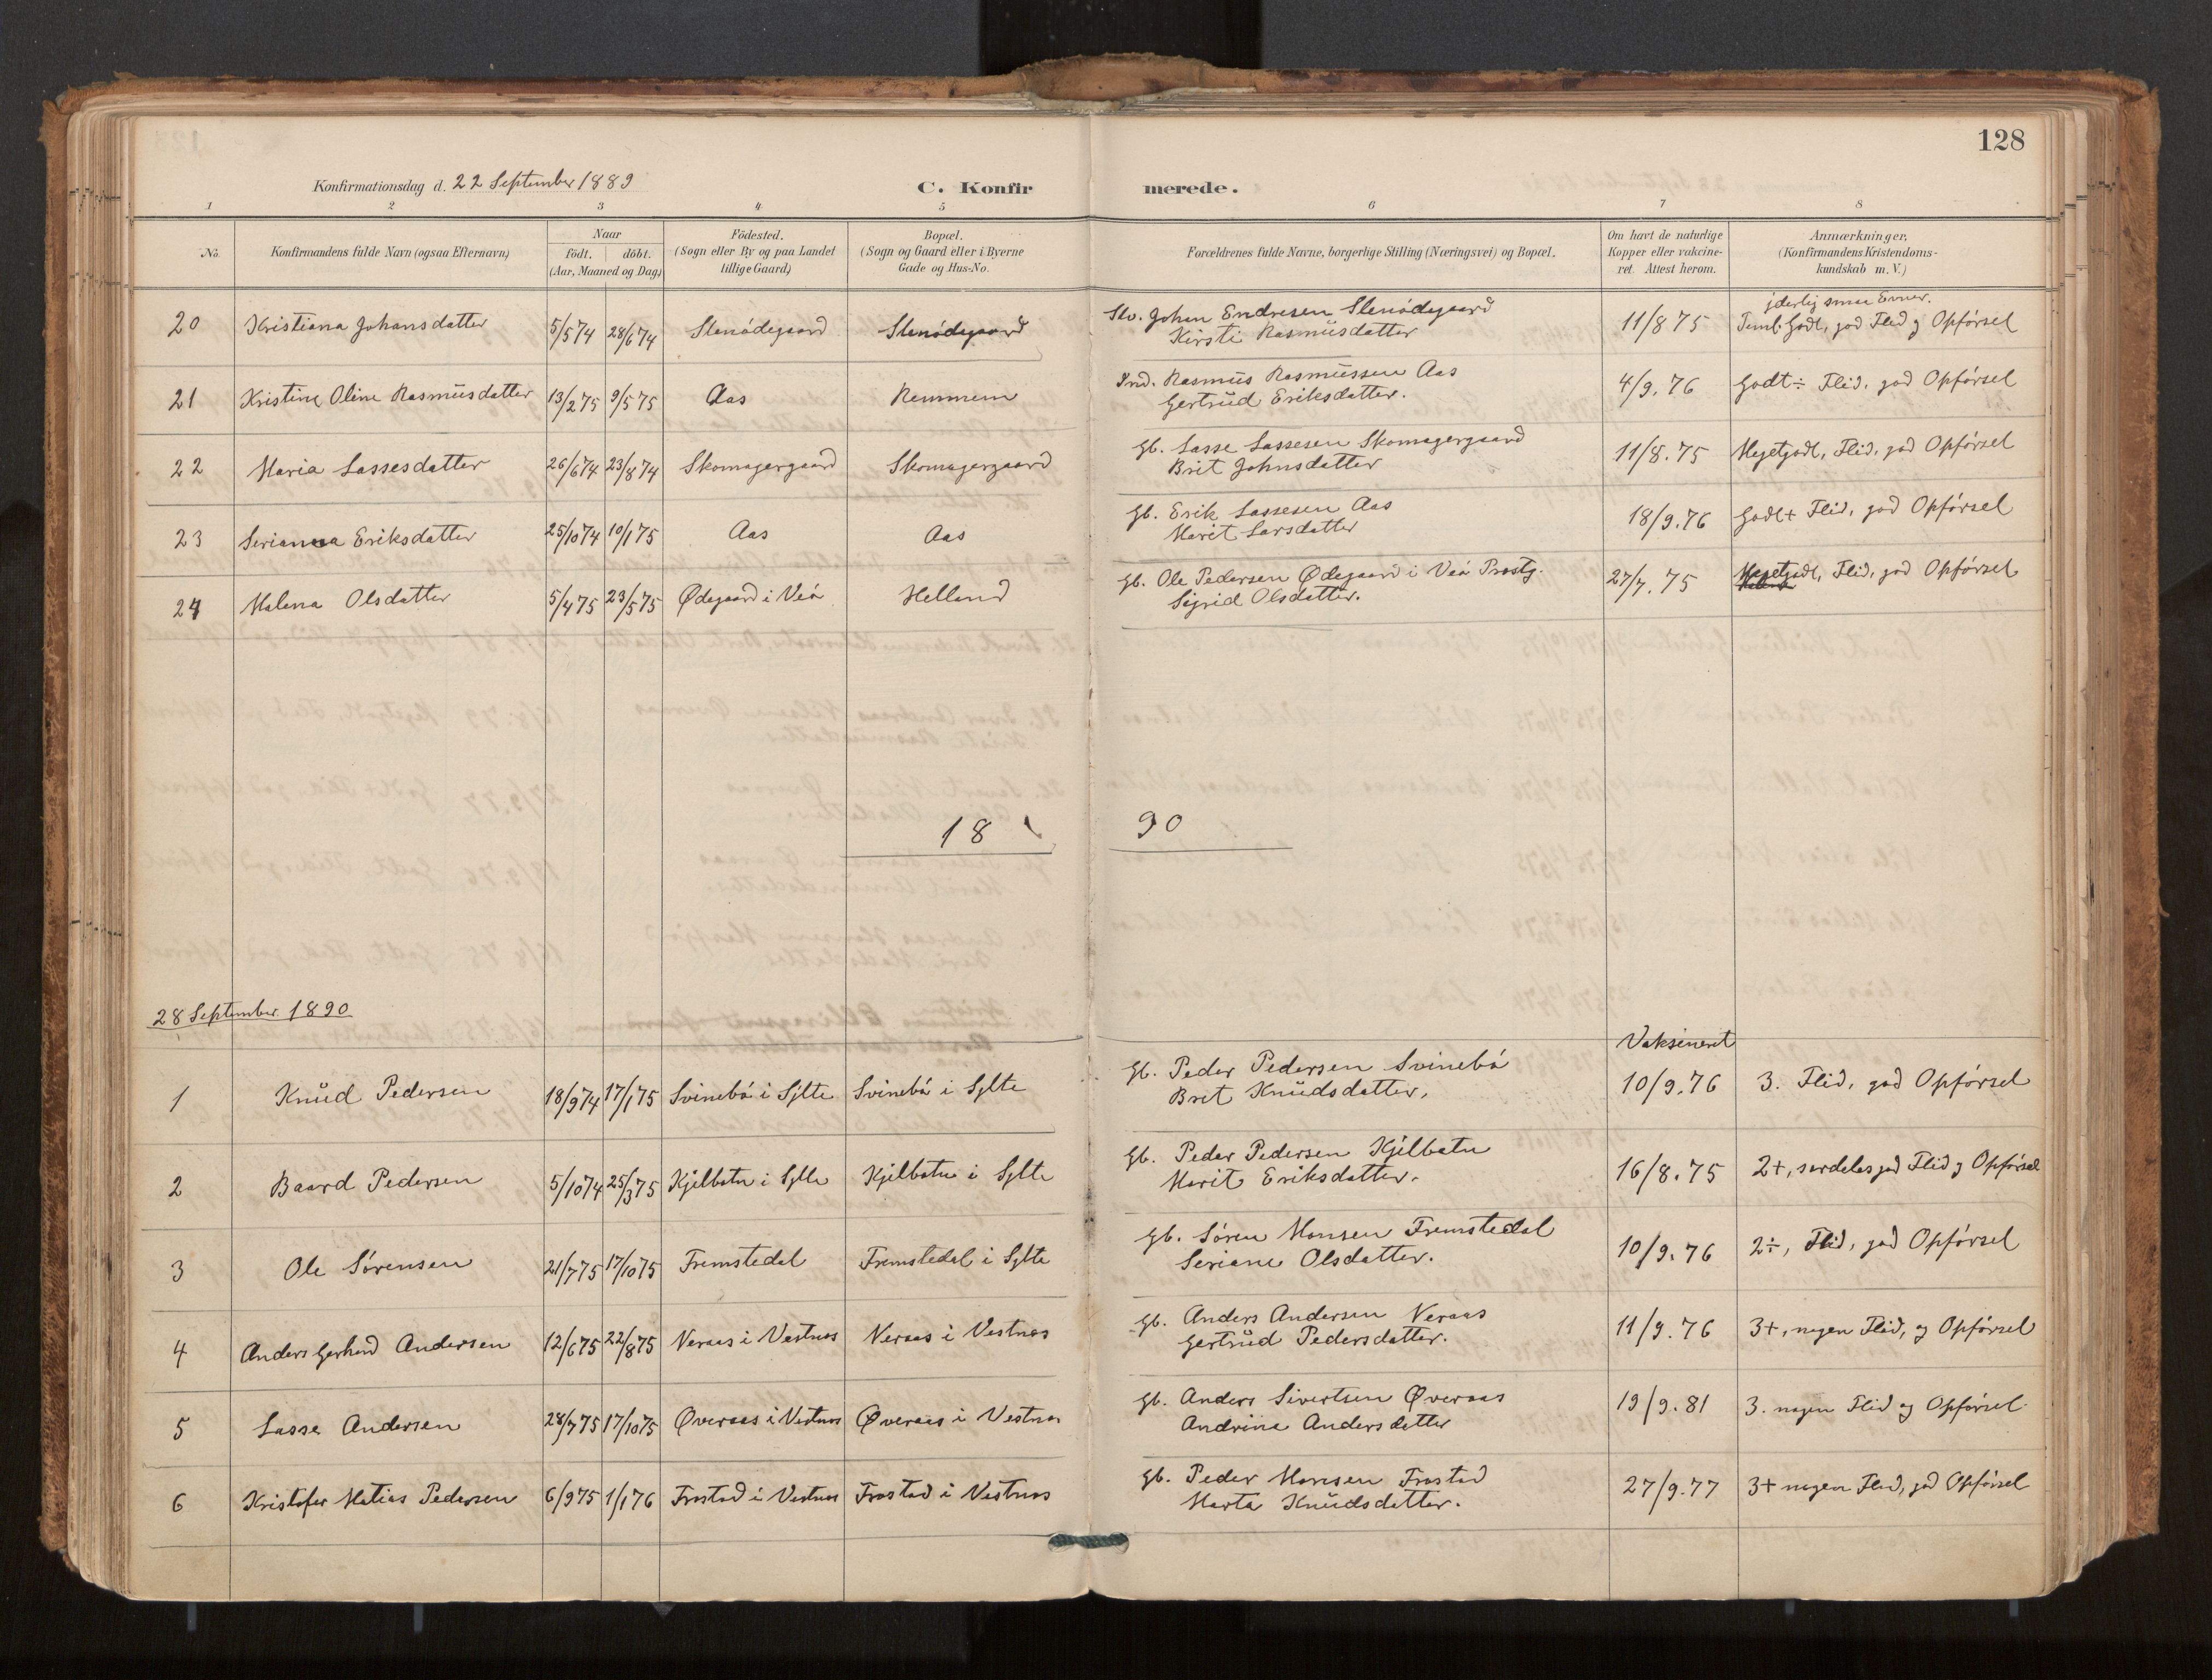 128
Konfirmationsdag d. 22 September 1889
C. Konfirmerede.
1 2 3 4 5 6 7 8
No. Konfirmandens fulde Navn (ogsaa Efternavn) Naar födt. döbt. (Aar, Maaned og Dag) Födested. (Sogn eller By og paa Landet tillige Gaard) Bopæl. (Sogn og Gaard eller i Byerne Gade og Hus-No. Forældrenes fulde Navne, borgerlige Stilling (Næringsvei) og Bopæl. Om havt de naturlige Kopper eller vakcineret. Attest herom. Anmærkninger, (Konfirmandens Kristendomskundskab m. V.)
20 Kristiana Johansdatter 5/5 74 28/6 74 Stenödegaard Stenödegaard Johan Endresen Stenödegaard 11/8 75 Godt, god Flid og Opförsel
Kirsti Rasmusdatter
21 Kristine Oline Rasmusdatter 13/2 75 9/5 75 Aas Remmem Ind. Rasmus Rasmussen Aas 4/9. 76 Godt÷ Flid, god Opförsel
Gertrud Eriksdatter.
22 Maria Lassesdatter 26/6 74 23/8 74 Skomagergaard Skomagergaard Gb. Lasse Lassesen Skomagergaard 11/8. 75 Megetgodt, Flid, god Opförsel
Brit Johnsdatter
23 Serianna Eriksdatter 25/10 74 10/1 75 Aas Aas Gb. Erik Lassesen Aas 18/9. 76 Godt+ Flid, god Opförsel
Marit Larsdatter
24 Malena Olsdatter 5/4 75 23/5 75 Ødegaard i Veö Helland Gb. Ole Pedersen Ødegaard i Veö Prestg. 27/7. 75 Megetgodt, Flid, god Opförsel
Sigrid Olsdatter.
18 90
28 September 1890
Vaksineret
1 Knud Pedersen 18/9 74 17/1 75 Svinebö i Sylte Svinebö i Sylte Gb. Peder Pedersen Svinebö 10/9. 76 3. Flid, god Opförsel
Brit Knudsdatter,
2 Baard Pedersen 5/10 74 25/3 75 Kjelbotn i Sylte Kjelbotn i Sylte Gb. Peder Pedersen Kjelbotn 16/8. 75 2+, serdeles god Flid og Opförsel
Marit Eriksdatter.
3 Ole Sörensen 21/7 75 17/10 75 Fremstedal Fremstedal i Sylte Gb. Sören Monsen Fremstedal 10/9. 76 2÷, Flid, god Opförsel
Seriane Olsdatter.
4 Anders Gerhard Andersen 12/6 75 22/8 75 Veraas i Vestnes Veraas i Vestnes Gb. Anders Andersen Veraas 11/9. 76 3+, nogen Flid, og Opförsel
Gertrud Pedersdatter.
5 Lasse Andersen 28/7 75 17/10 75 Øveraas i Vestnes Øveraas i Vestnes Gb. Anders Sivertsen Øveraas 19/9. 81 3. nogen Flid og Opförsel.
Andrine Andersdatter
6 Kristofer Matias Pedersen 6/9 75 1/1 76 Frostad i Vestnes Frostad i Vestnes Gb. Peder Monsen Frostad 27/9. 77 3+ nogen Flid, god Opförsel
Marta Knudsdatter.